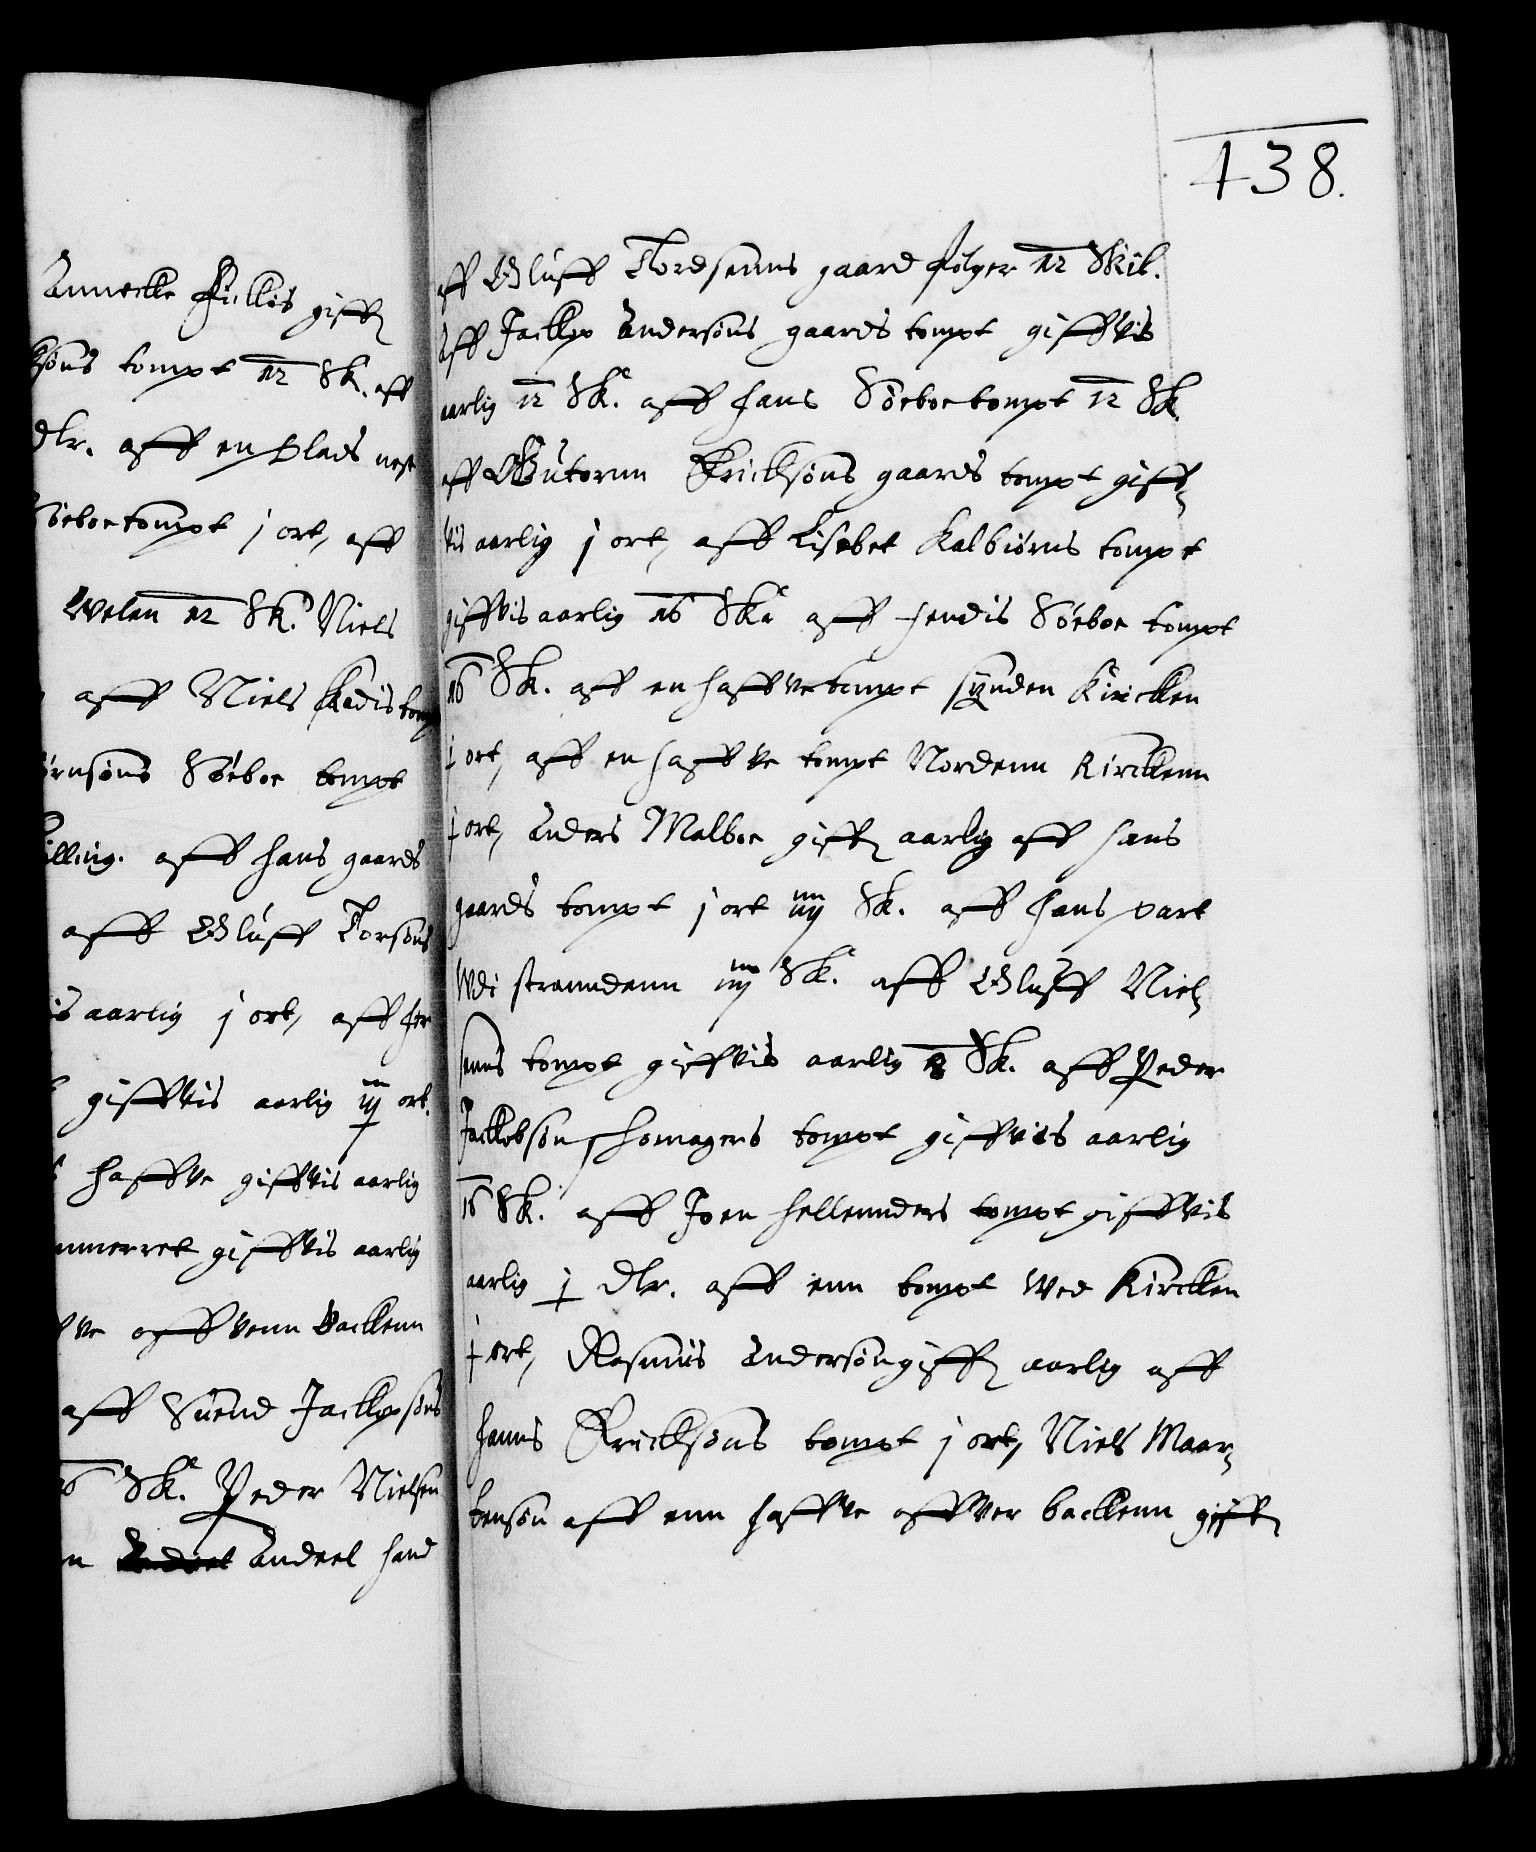 438.
Annecke Fickis giff
søns tompt 12 Sk. aff
dlr. aff en plads nest
Søeboe tompt j ort, aff
Welen 12 Sk. Niels
aff Niels Kadis tomp
ørnsøns Søeboe tompt
illing. aff hans gaards
aff Oluff Torsøns
is aarlig j ort, aff her
giffvis aarlig iij ort.
haffve giffvis aarlig
giffvis aarlig
ve offvenn Backenn
aff Suend Jackopsøns
16 Sk. Peder Nielsen
n Andeel hand
aff Oluff Tordsenns gaard følger 12 Skil.
Aff Jackop Andersøns gaards tompt giffvis
aarlig 12 Sk. aff hans Søeboe tompt 12 Sk.
aff Gutorm Ericksøns gaards tompt giff-
vis aarlig j ort, aff Lisebet Kalbiørns tompt
giffvis aarlig 16 Sk. aff hendis Søeboe tompt
16 Sk. aff en haffve tompt synden Kircken
j ort, aff en haffve tompt Nordenn Kirckenn
j ort, Anders Malboe giff aarlig aff hans
gaards tompt j ort iiij Sk. aff hans part
Wdi stranndenn iiij Sk. aff Oluff Niel-
senns tompt giffvis aarlig 8 Sk. aff Peder
Jackobsøn homagers tompt giffvis aarlig
16 Sk. aff Joen hellennders tompt giffvis
aarlig j dlr. aff enn tompt Wed Kircken
j ort, Rasmus Andersøn giff aarlig aff
hanns Ericksøns tompt j ort, Niels Maar-
tensøn aff enn haffve offver backenn giff